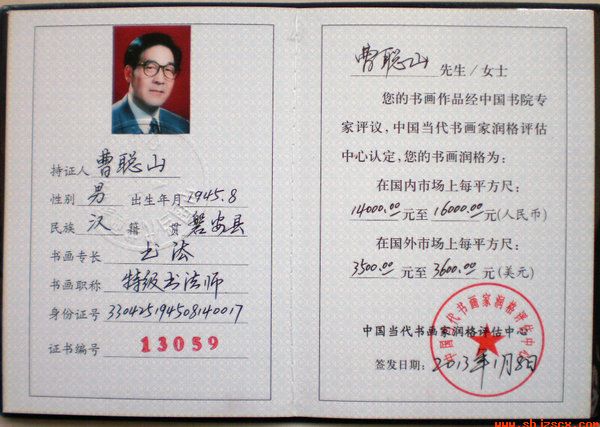 持证人 曹聪山
性别 男 出生年月 1945.8
民族 汉 籍贯 磐安县
书画专长 书法
书画职称 特级书法师
身份证号 330425194508140017
证书编号 13059
曹聪山 先生/女士
您的书画作品经中国书院专
家评议，中国当代书画家润格评估
中心认定，您的书画润格为：
在国内市场上每平方尺：
14000.00元至16000.00元(人民币)
在国外市场上每平方尺：
3500.00元至3600.00元(美元)
中国当代书画家润格评估中心
签发日期：2013年1月8日
中国当代书画家润格评估中心
www.shjzscx.com